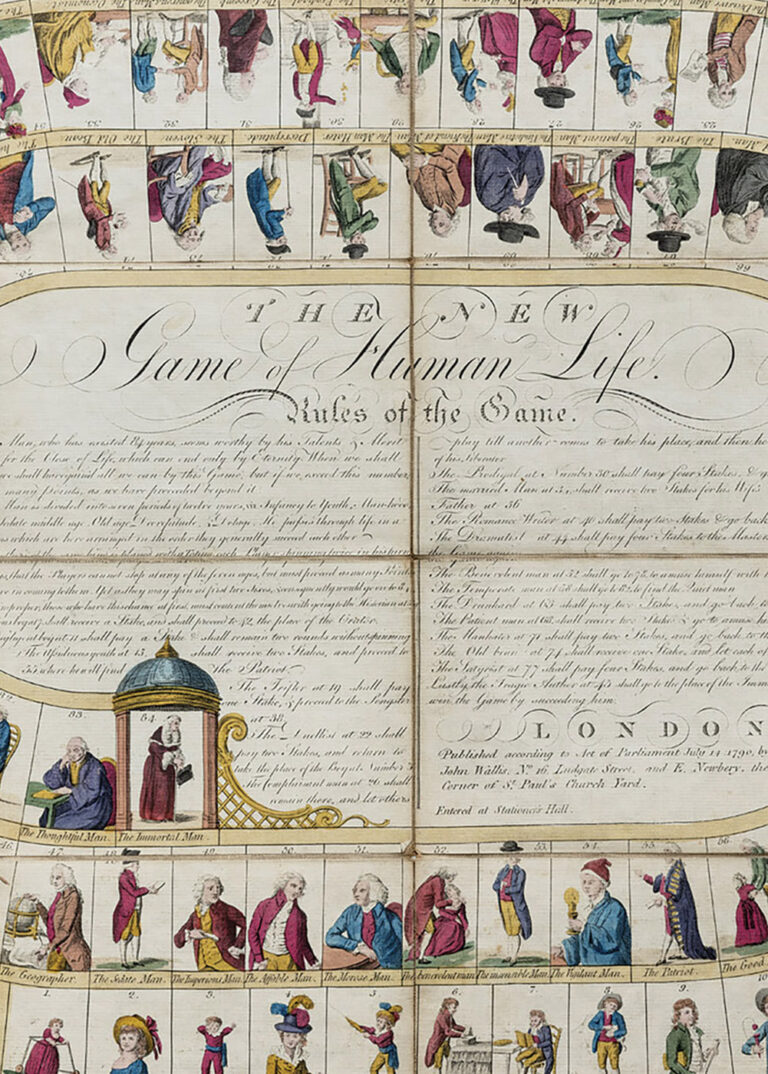 The Economist.
33. 32. 31. 30. 29. 28. 27. 26. 25.
The Old Beau. The Sloven. Decrepitude. The Man Hater. The patient Man. The Brute. Man.
74. 73. 72. 71. 70. 69. 66.
THE NEW
Game of Human Life.
Rules of the Game.
Man, who has existed 84 years, seems worthy by his Talents & Merit
for the Close of Life, which can end only by Eternity. When we shall
we shall have quired all we can by this Game; but if we exceed this number,
many points, as we have proceeded beyond it.
Man is divided into seven periods of twelve years, viz Infancy to Youth, Manhood,
middle age, Old age, Decrepitude, & Dotage. He passes through life in a
which are here arranged in the order they generally succeed each other
that the Players cannot stop at any of the seven ages, but must proceed as many Points
in coming to them. Yet as they may spin at first two Sixes, & consequently would go to
improper, those who have this chance at first, must content themselves with going to the Historian at
at 7 shall receive a Stake, and shall proceed to 42, the place of the Orator.
at 11 shall pay a Stake & shall remain two rounds without spinning
The Assiduous youth at 15, shall receive two Stakes, and proceed to
55 where he will find the Patriot.
The Trifler at 19 shall pay
one Stake, & proceed to the Songster
at 38.
The Duellist at 22 shall
pay two Stakes, and return to
take the place of the Boy at Number 3
The Complaisant man at 26 shall
remain there, and let others
play till another comes to take his place, and then he
of his Liberator
The Prodigal at Number 30 shall pay four Stakes, &
The married Man at 34, shall receive two Stakes for his Wife's
Father at 56
The Romance Writer at 40 shall pay two Stakes & go back
The Dramatist at 44 shall pay four Stakes to the Masters
the Game again
The Benevolent man at 52 shall go to 78, to amuse himself with
The Temperate man at 58 shall go to 62, to find the Quiet man
The Drunkard at 63 shall pay two Stakes, and go back to
The Patient man at 68, shall receive two Stakes & go to amuse
The Manhater at 71 shall pay two Stakes, and go back to
The Old beau at 74 shall receive one Stake, and let each of
The Satyrist at 77 shall pay four Stakes, and go back to the
Lastly, the Tragic Author at 45 shall go to the place of the Immo
win the Game by succeeding him.
LONDON
Published according to Act of Parliament July 14 1790, by
John Wallis, No. 16, Ludgate Street, and E. Newbery, the
Corner of St. Paul's Church Yard.
Entered at Stationers Hall.
83. 84.
The Thoughtful Man. The Immortal Man.
46. 47. 48. 49. 50. 51. 52. 53. 54. 55. 56
The Geographer. The Sedate Man. The Imperious Man. The Affable Man. The Morose Man. The benevolent man. The insensible Man. The Vigilant Man. The Patriot. The Good
1. 2. 3. 4. 5. 6. 7. 8. 9. 10